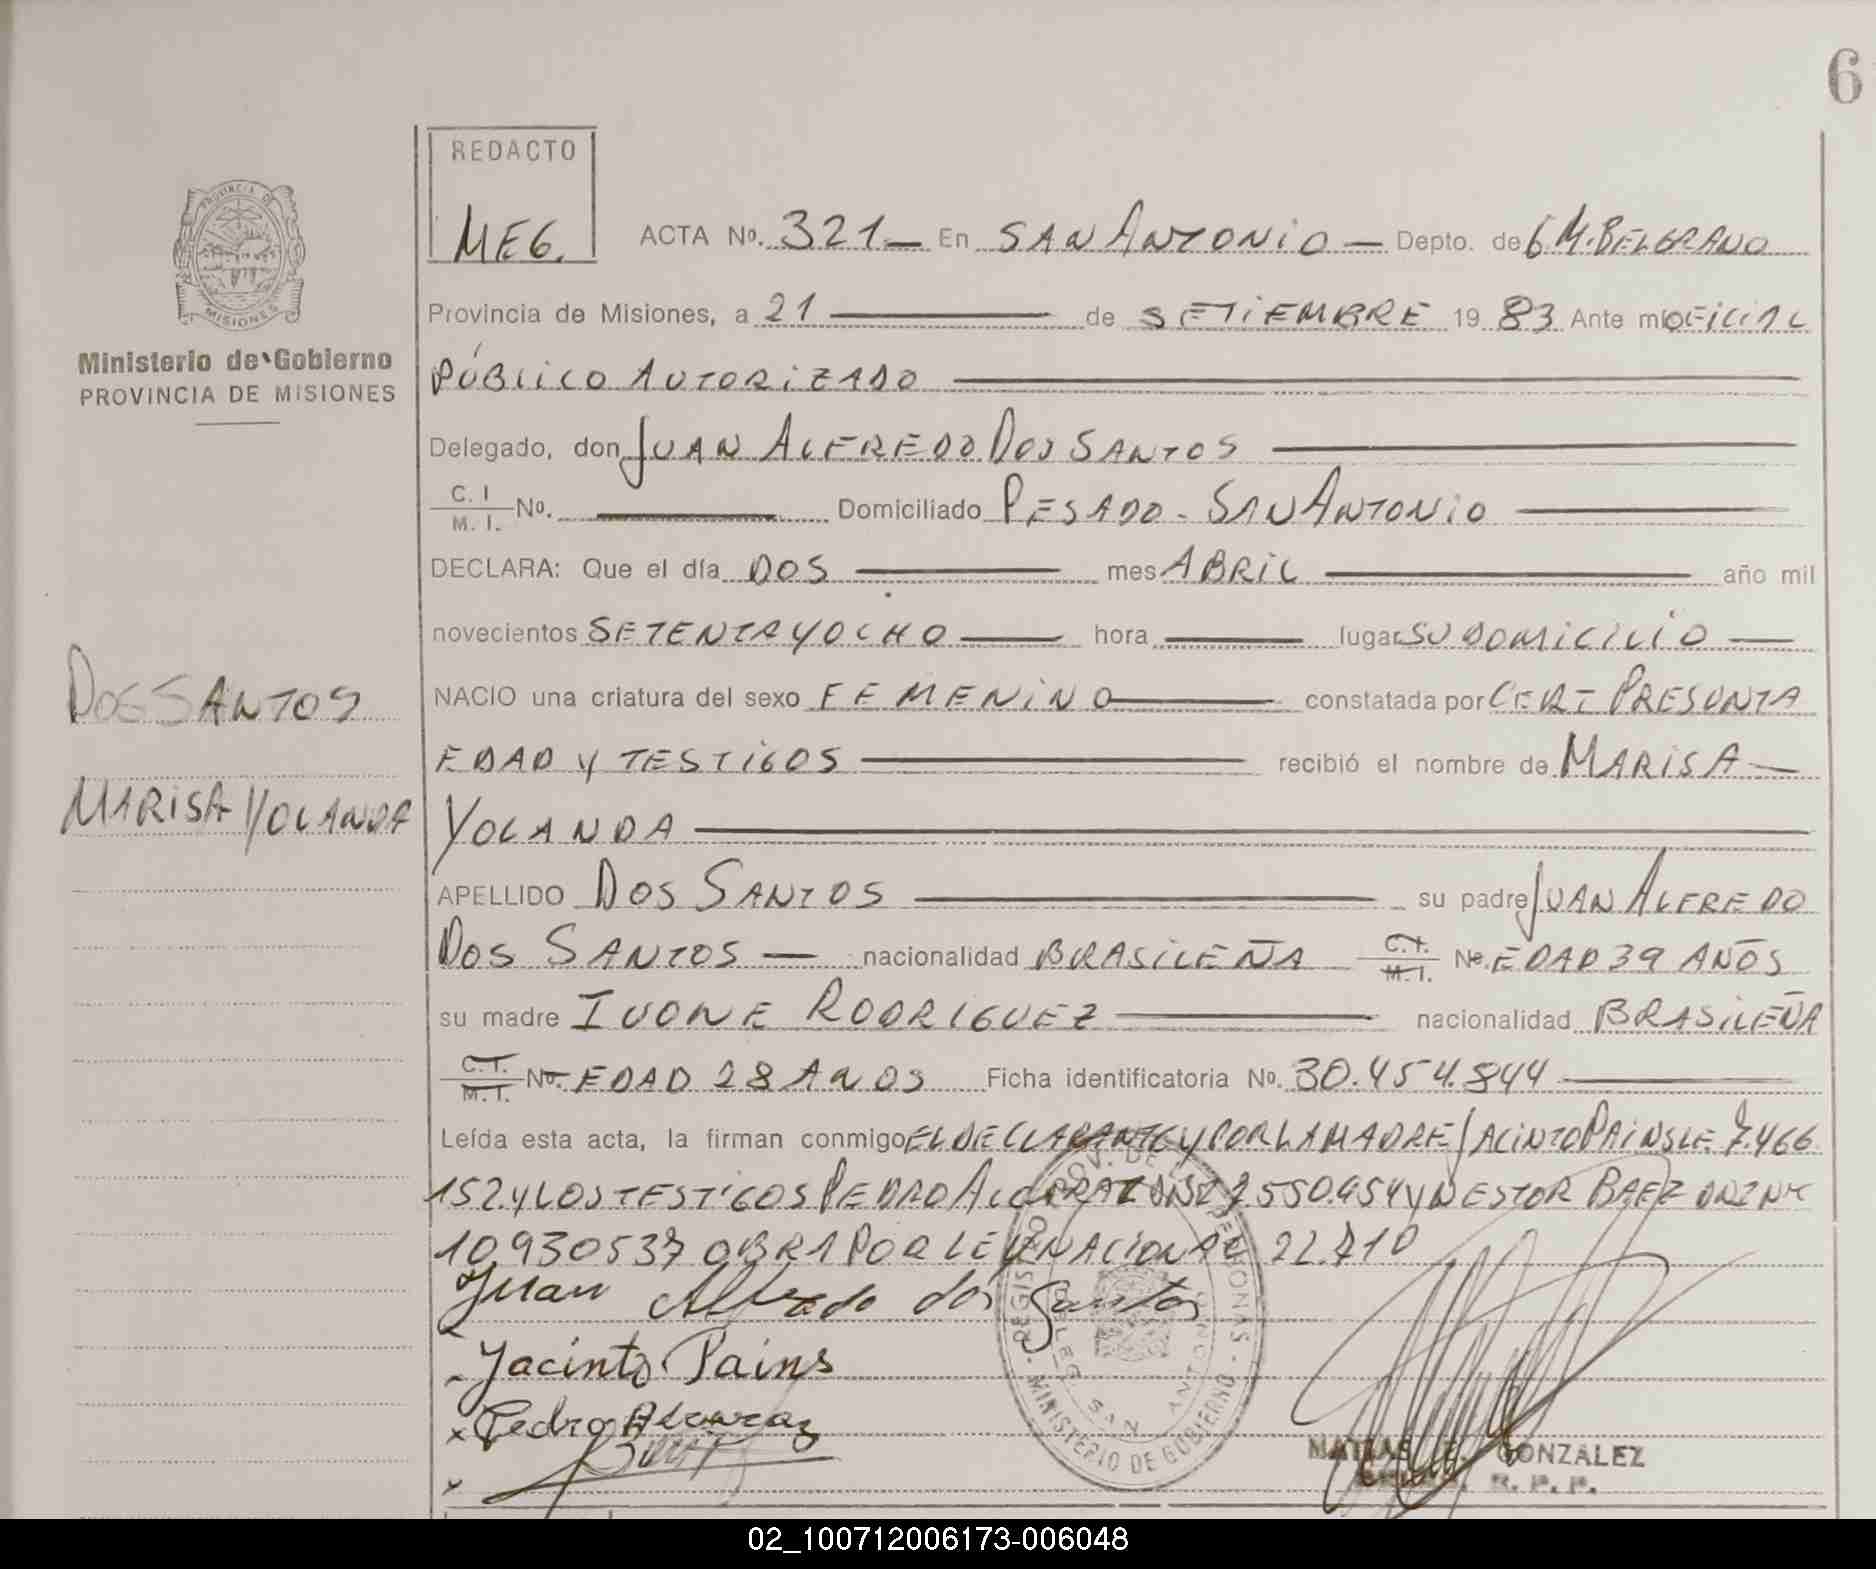 6
REDACTO
MEG.
ACTA Nº. 321 — En SAN ANTONIO — Depto. de G M. BELGRANO
Provincia de Misiones, a 21 — de SETIEMBRE 19 83 Ante mi OFICIAL
PÚBLICO AUTORIZADO —
Delegado, don JUAN ALFREDO DOS SANTOS —
C. I / M. I. Nº. — Domiciliado PESADO - SAN ANTONIO —
DECLARA: Que el día DOS — mes ABRIL — año mil
novecientos SETENTA Y OCHO — hora — lugar SU DOMICILIO —
NACIO una criatura del sexo FEMENINO — constatada por CERT PRESUNTA
EDAD Y TESTIGOS — recibió el nombre de MARISA —
YOLANDA —
APELLIDO DOS SANTOS — su padre JUAN ALFREDO
DOS SANTOS — nacionalidad BRASILEÑA C.I. / M.I. Nº. EDAD 39 AÑOS
su madre IVONE RODRIGUEZ — nacionalidad BRASILEÑA
C.I. / M.I. Nº. EDAD 28 AÑOS Ficha identificatoria Nº. 30.454.844 —
Leída esta acta, la firman conmigo EL DECLARANTE Y POR LA MADRE JACINTO PAINS LE. 7.466
152. Y LOS TESTIGOS PEDRO ALCARAZ DNI 7.550.954 Y NESTOR BAEZ DNI Nº
10.930537 OBRA POR LEY NACIONAL 22.710
Juan Alfredo dos Santos
Jacinto Pains
x Pedro Alcaraz
x
REGISTRO PROV. DE PERSONAS
MINISTERIO DE GOBIERNO
DELEG. SAN ANTONIO
MATIAS GONZALEZ
R. P. P.
PROVINCIA DE
MISIONES
Ministerio de Gobierno
PROVINCIA DE MISIONES
DOS SANTOS
MARISA YOLANDA
02_100712006173-006048